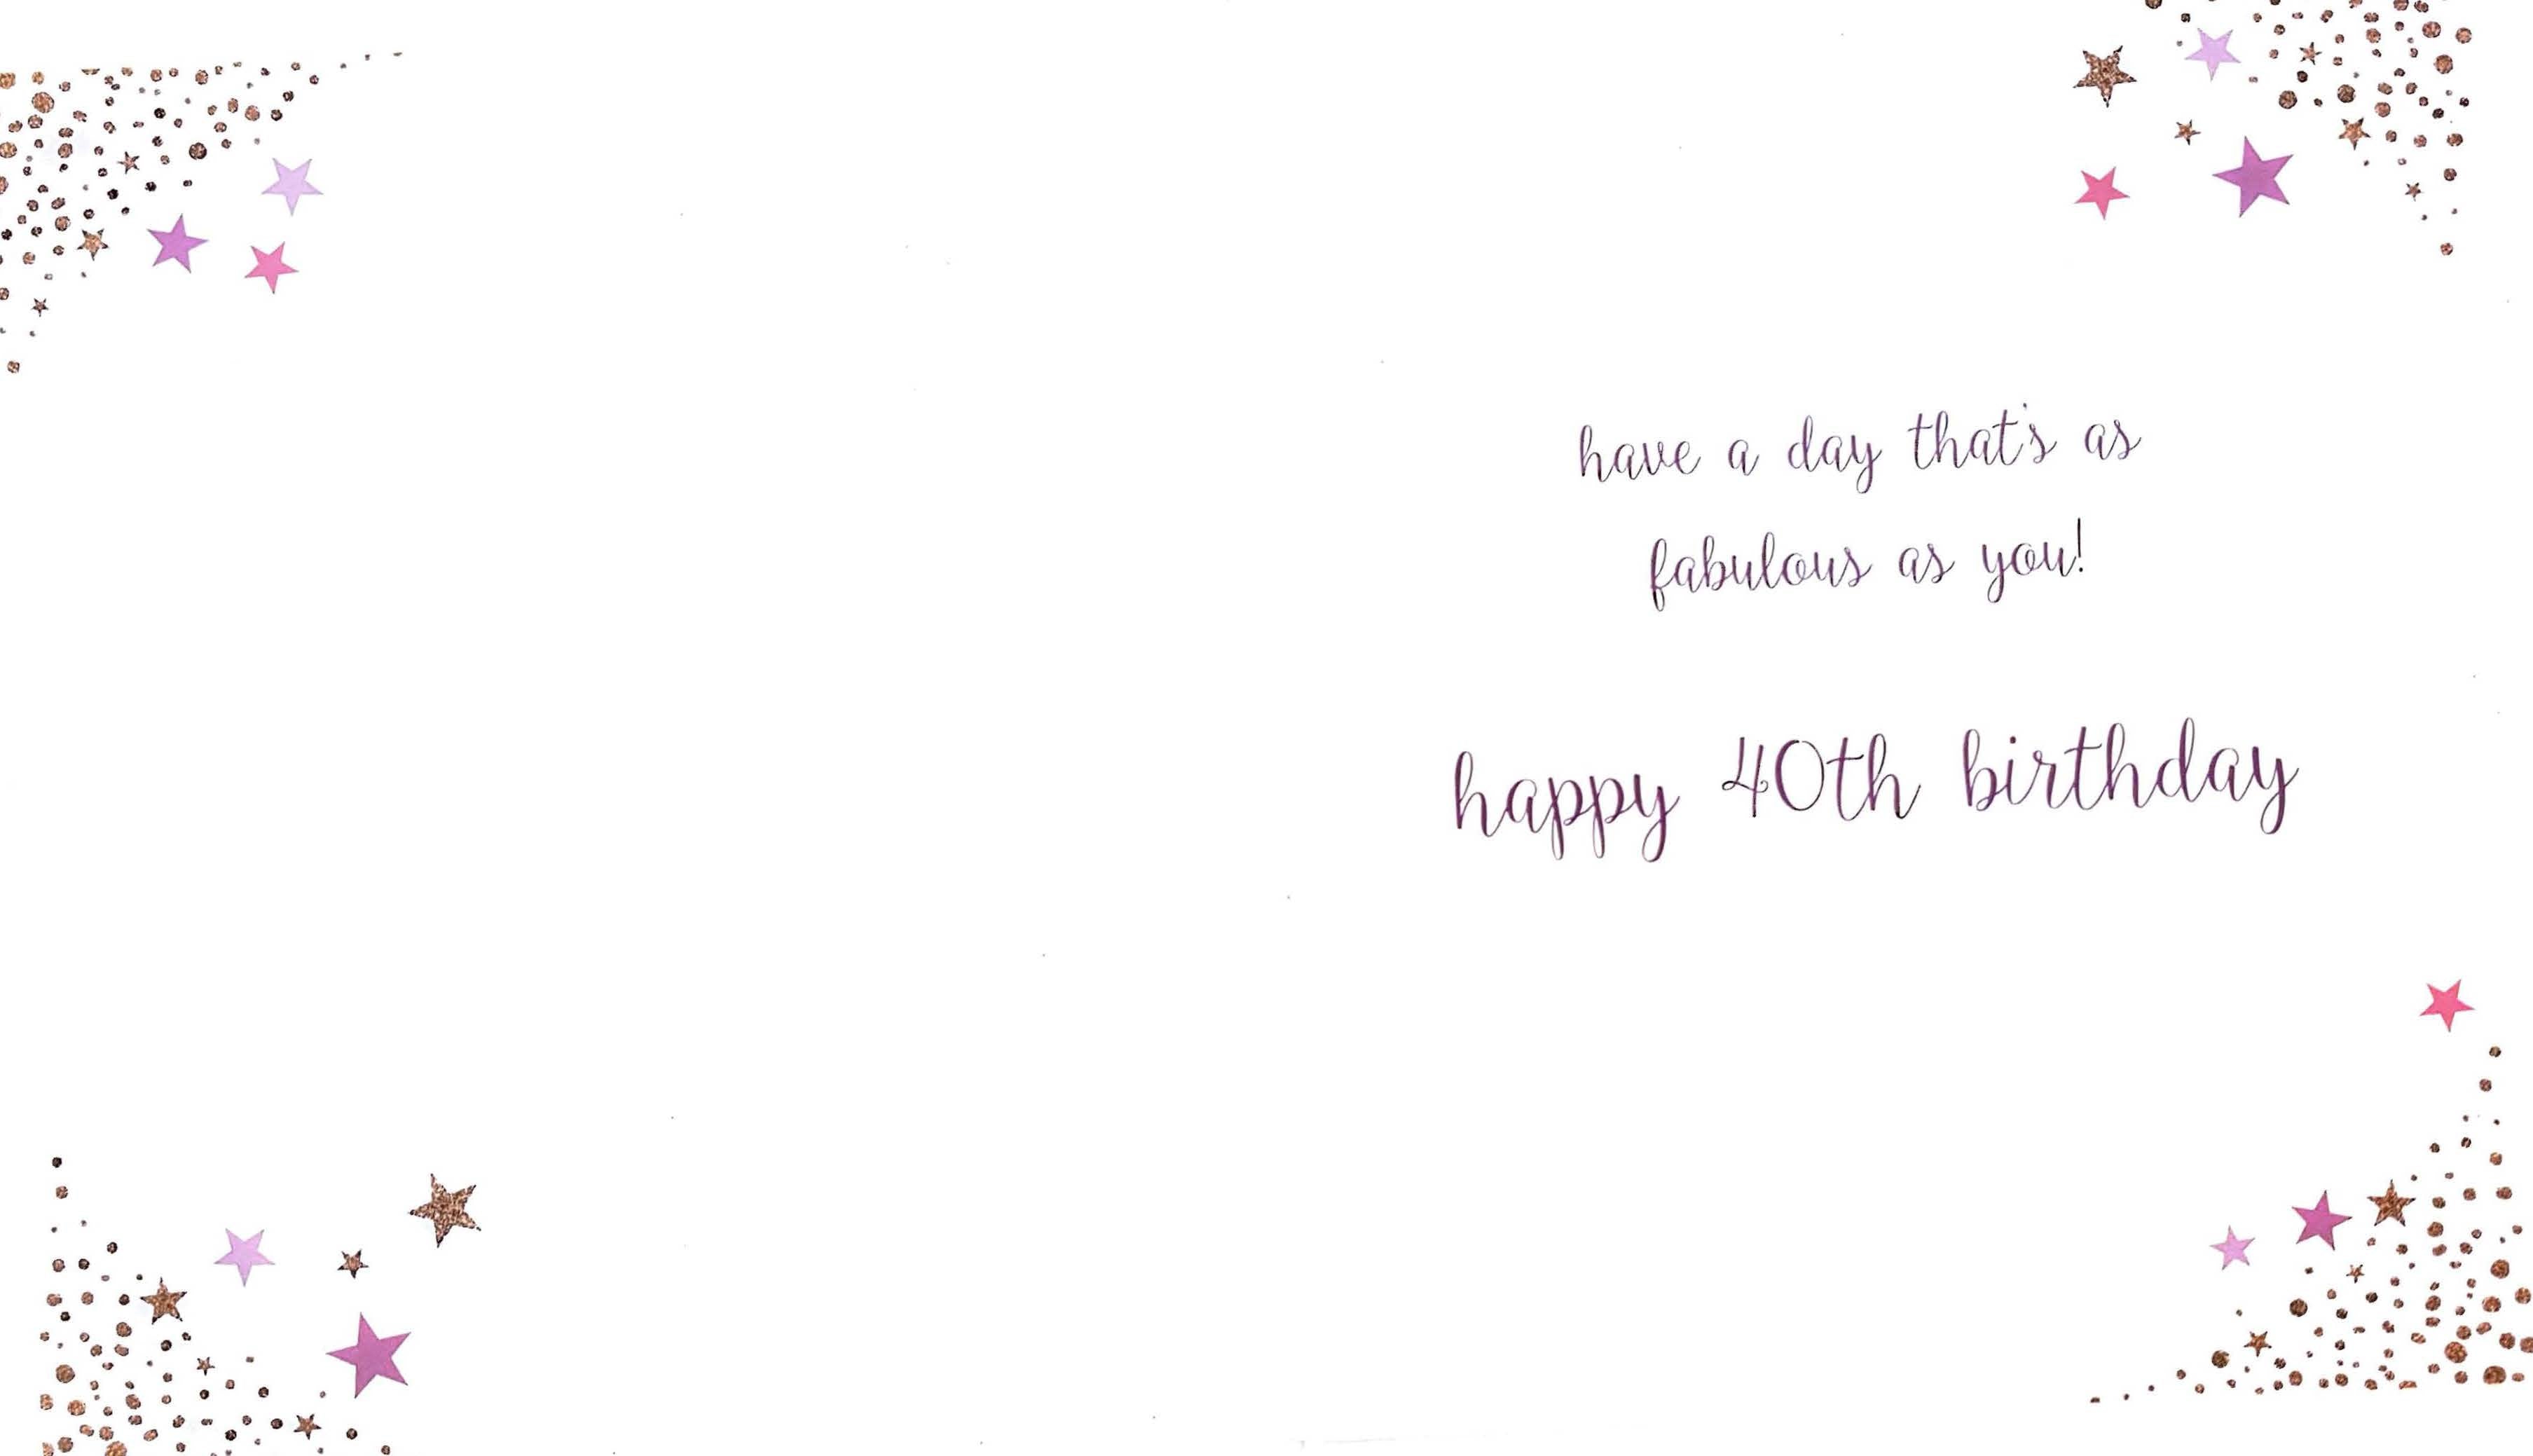 have a day that's as
fabulous as you!
happy 40th birthday